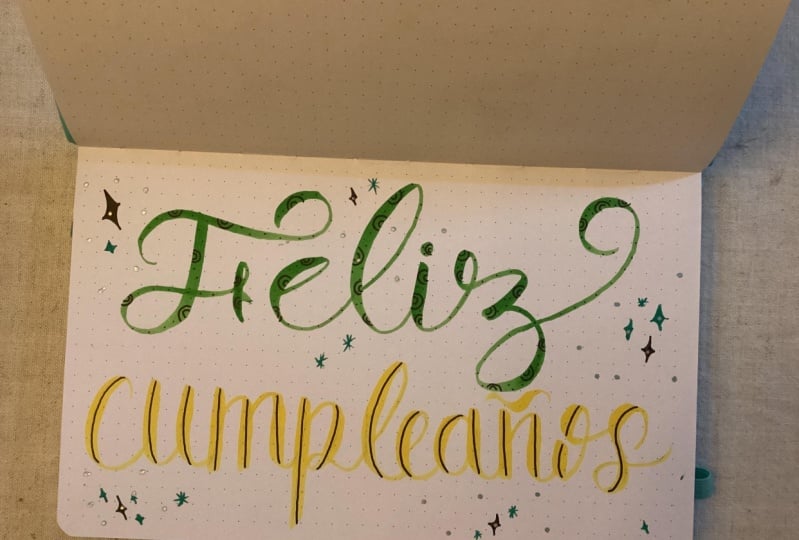 Feliz
cumpleaños